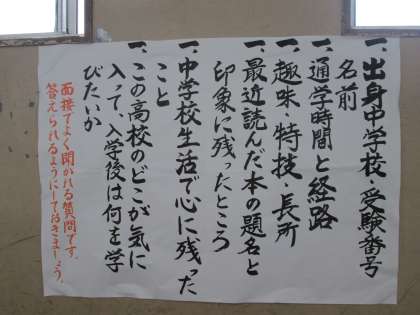 一、出身中学校、受験番号
名前
一、通学時間と経路
一、趣味・特技・長所
一、最近読んだ本の題名と
印象に残ったところ
一、中学校生活で心に残った
こと
一、この高校のどこが気に
入って、入学後は何を学
びたいか
面接でよく聞かれる質問です。
答えられるようにしておきましょう。